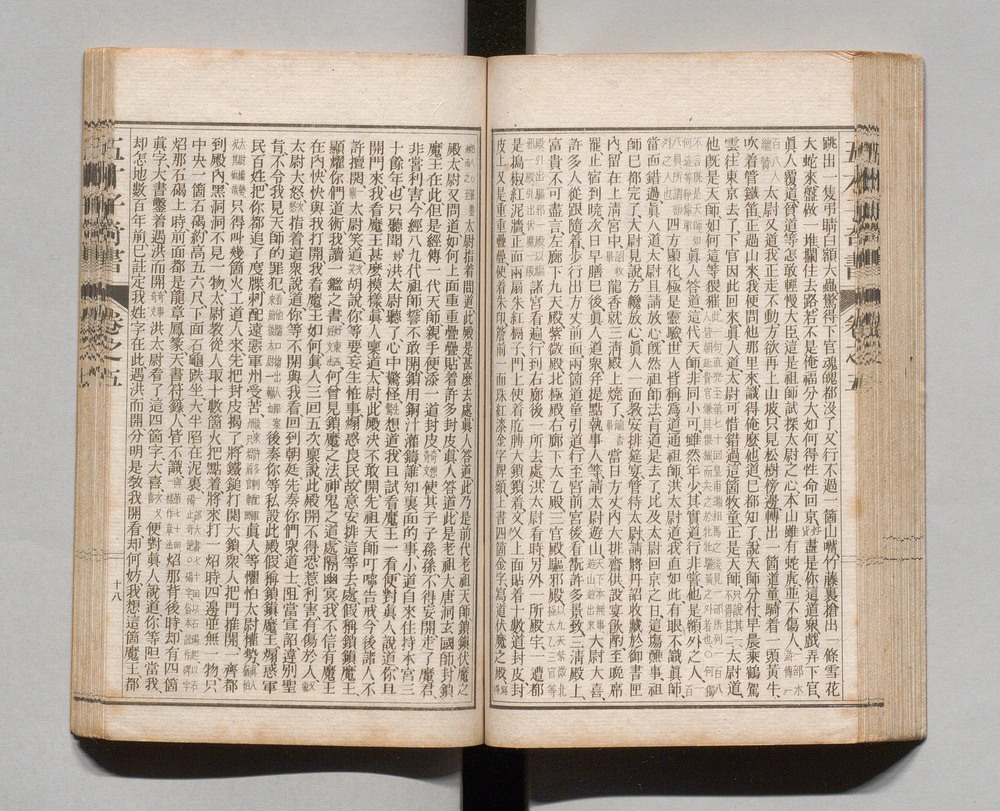 跳出一隻弔睛白額大蟲驚得下官魂魄都沒了又行不過一箇山嘴竹藤裏搶出一條雪花
大蛇來盤做一堆攔住去路若不是俺福分大如何得性命回京盡是你這道衆戲弄下官
眞人覆道貧道等怎敢輕慢大臣這是祖師試探太尉之心本山雖有蛇虎並不傷人
太尉又道我正走不動方欲再上山坡只見松樹傍邊轉出一箇道童騎着一頭黃牛
吹着管鐵笛正過山來我便問他那里來識得俺麽他道已都知了說天師分付早晨乘鶴駕
雲往東京去了下官因此回來眞人道太尉可惜錯過這箇牧童正是天師太尉道
他旣是天師如何這等猥獕眞人答道這代天師非同小可雖然年少其實道行非常他是額外之人
四方顯化極是靈驗世人皆稱爲道通祖師洪太尉道我直如此有眼不識眞師
當面錯過眞人道太尉且請放心旣然祖師法旨道是去了比及太尉回京之日這塲醮事祖
師已都完了太尉見說方纔放心眞人一面教安排筵宴管待太尉請將丹詔收藏於御書匣
內留在上清宮中龍香就三清殿上燒了當日方丈內大排齋供設宴飲酌至晚席
罷止宿到曉次日早膳已後眞人道衆幷提點執事人等請太尉遊山太尉大喜
許多人從跟隨着步行出方丈前面兩箇道童引道行至宮前宮後看翫許多景致三清殿上
富貴不可盡言左廊下九天殿紫微殿北極殿右廊下太乙殿三官殿驅邪殿
諸宮看遍行到右廊後一所去處洪太尉看時另外一所殿宇一遭都
是搗椒紅泥牆正面兩扇朱紅槅子門上使着胳膊大鎖鎖着交叉上面貼着十數道封皮封
皮上又是重重疊疊使着朱印簷前一面朱紅漆金字牌額上書四箇金字寫道伏魔之殿
太尉指着門道此殿是甚麽去處眞人答道此乃是前代老祖天師鎖鎮伏魔之
殿太尉又問道如何上面重重疊疊貼着許多封皮眞人答道此是老祖大唐洞玄國師封鎖
魔王在此但是經傳一代天師親手便添一道封皮使其子子孫孫不得妄開走了魔君
非常利害今經八九代祖師誓不敢開鎖用銅汁灌鑄誰知裏面的事小道自來住持本宮三
十餘年也只聽聞洪太尉聽了心中驚怪想道我且試看魔王一看便對眞人說道你且
開門來我看魔王甚麽模樣眞人稟道太尉此殿决不敢開先祖天師叮嚀告戒今後諸人不
許擅開太尉笑道胡說你等要妄生怪事煽惑良民故意安排這等去處假稱鎖鎮魔王
顯耀你們道術我讀一鑑之書何曾見鎖魔之法神鬼之道處隔幽冥我不信有魔王
在內快快與我打開我看魔王如何眞人三回五次稟說此殿開不得恐惹利害有傷於人
太尉大怒指着道衆說道你等不開與我看回到朝廷先奏你們衆道士阻當宣詔違別聖
旨不令我見天師的罪犯後奏你等私設此殿假稱鎖鎮魔王煽惑軍
民百姓把你都追了度牒刺配遠惡軍州受苦眞人等懼怕太尉權勢
只得呌幾箇火工道人來先把封皮揭了將鐵鎚打開大鎖衆人把門推開一齊都
到殿內黑洞洞不見一物太尉教從人取十數箇火把點着將來打一炤時四邊並無一物只
中央一箇石碣約高五六尺下面石龜趺坐大半陷在泥裏
炤那石碣上時前面都是龍章鳳篆天書符籙人皆不識炤那背後時却有四箇
眞字大書鑿着遇洪而開洪太尉看了這四箇字大喜便對眞人說道你等阻當我
却怎地數百年前已註定我姓字在此遇洪而開分明是教我開看却何妨我想這箇魔王都
十八